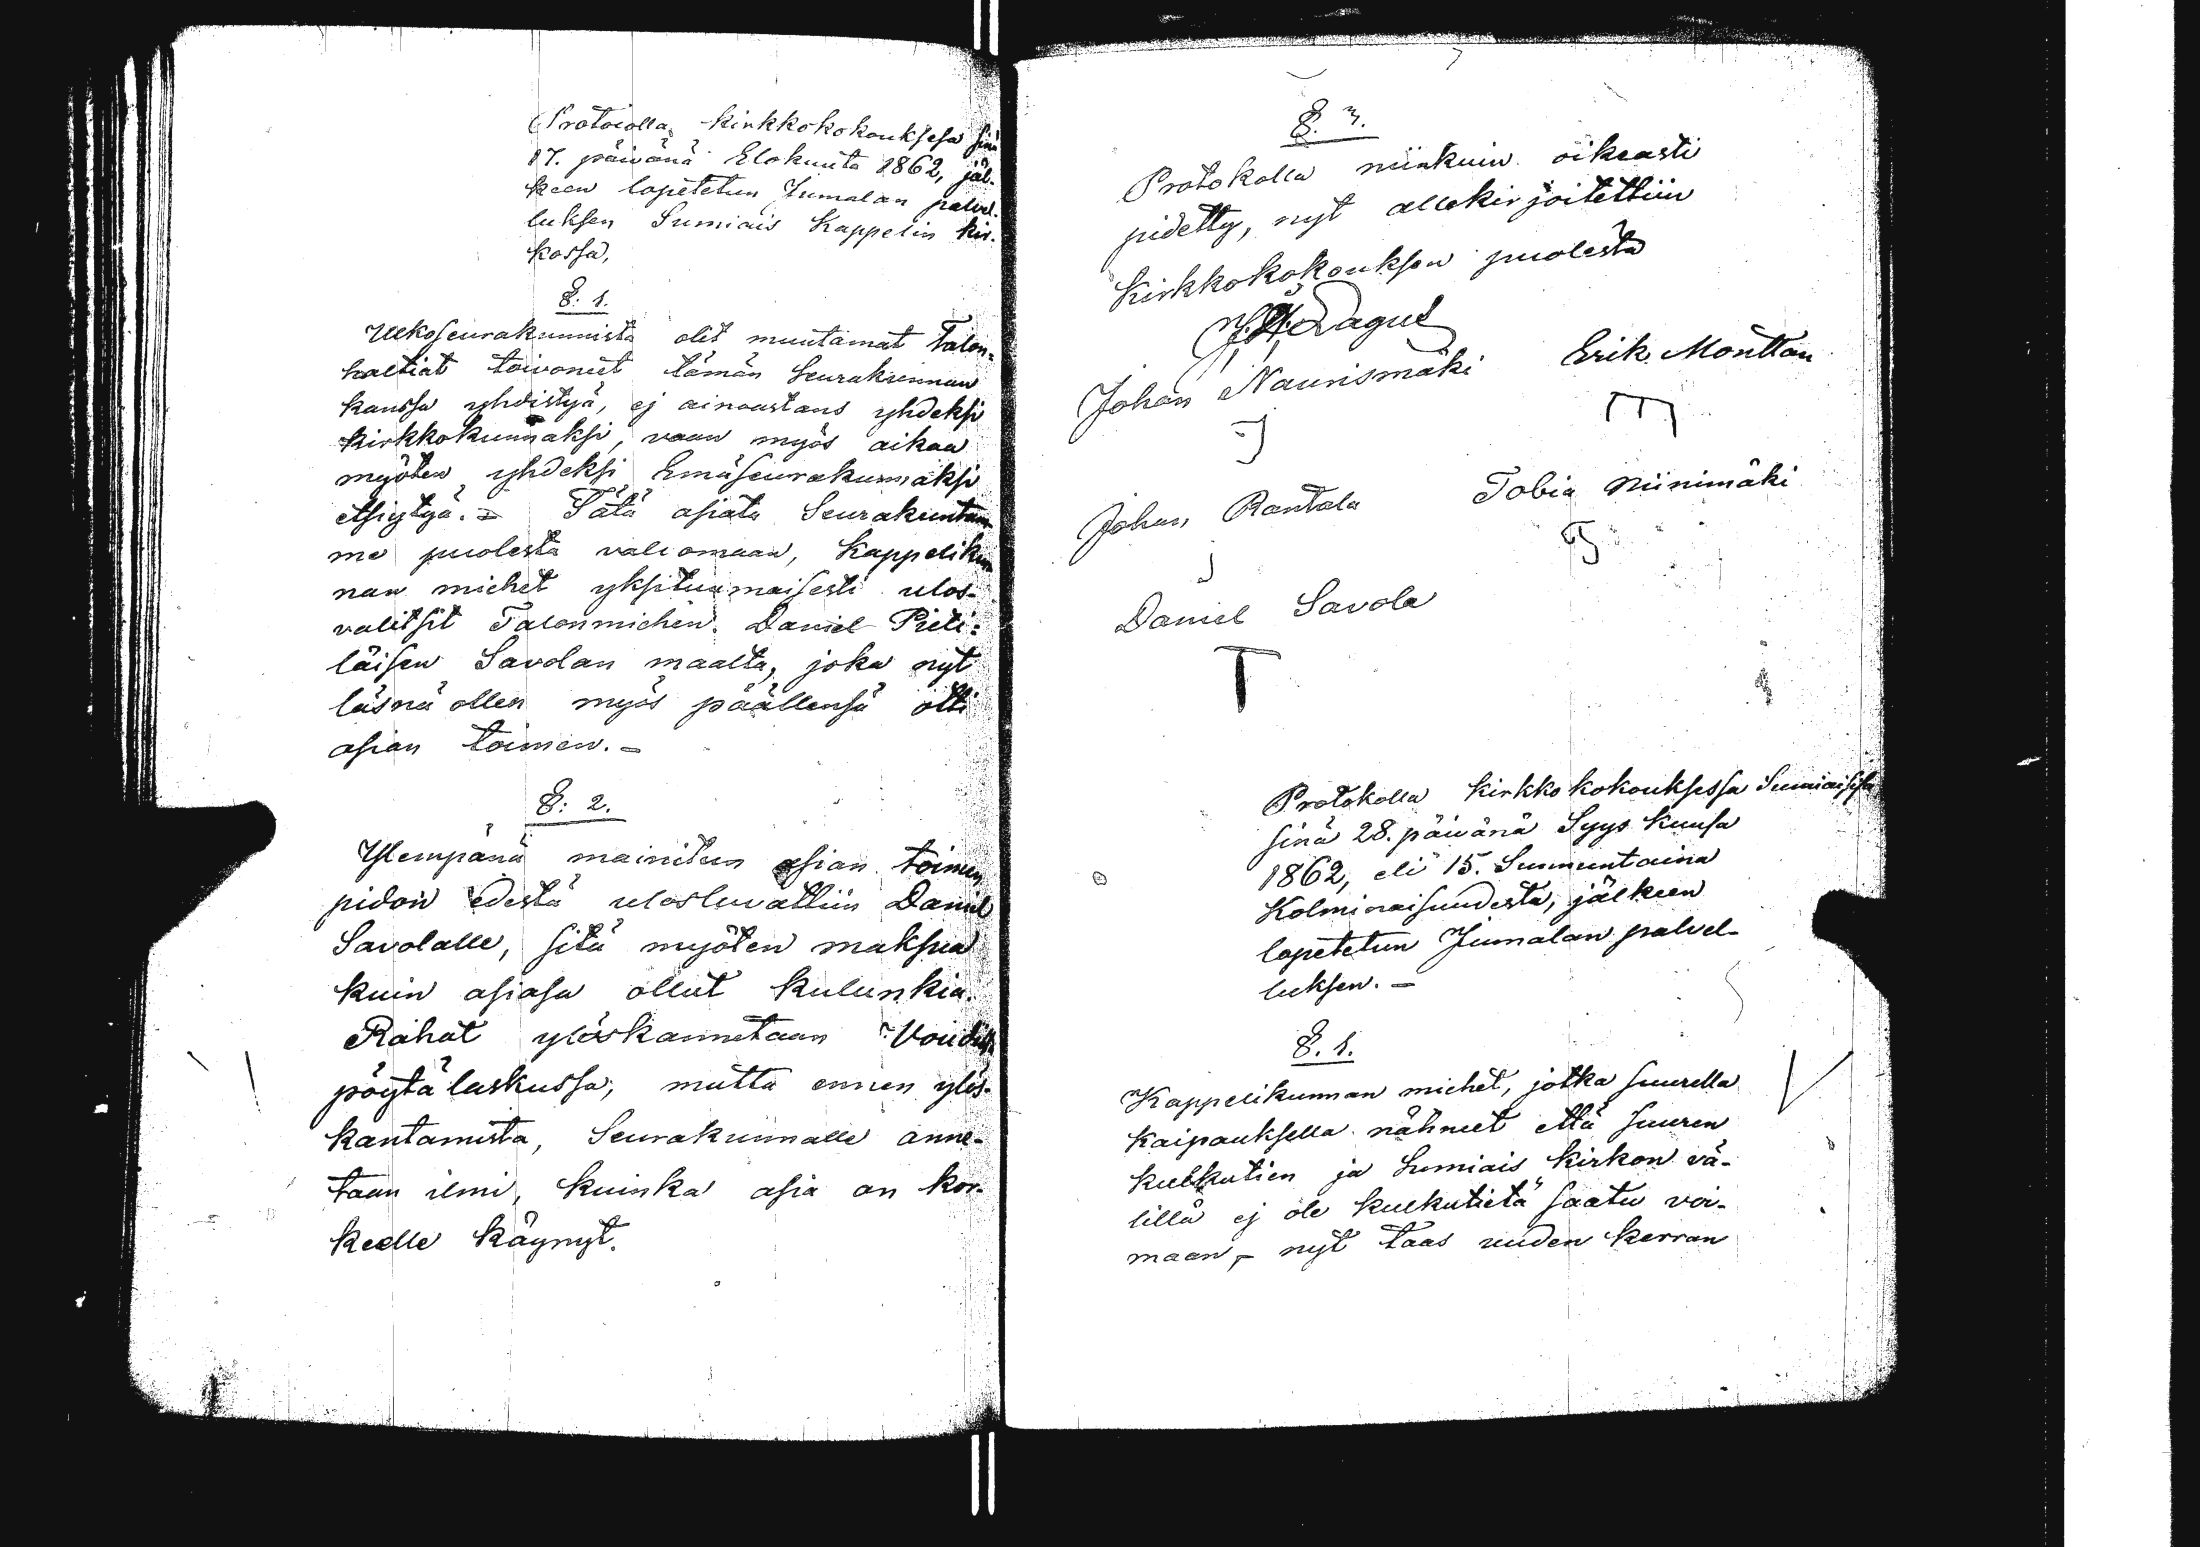 Protocolla kirkkokokouksesa sinä
17. päivänä Elokuuta 1862, jäl-
keen lopetetun Jumalan palvel-
luksen Sumiais Kappelin kir-
kossa,
§. 1.
Ulkoseurakunnista olit muutamat Talon-
haltiat toivonut tämän Seurakunnan
kanssa yhdistyä, ej ainoastans yhdeksi
kirkkokunnaksi, vaan myös aikaa
myöten yhdeksi Emäseurakunnaksi
etsiytyä. – Tätä asiata Seurakuntam
me puolesta valvomaan, Kappelikun
nan miehet yksituumaisesti ulos-
valitsit Talonmiehen Daniel Pieti-
läisen Savolan maalta, joka nyt
läsnä ollen myös päällensä otti
asian toimen. –
§. 2.
Ylempänä mainitun asian toimen
pidon edestä ulosluvattiin Daniel
Savolalle, sitä myöten maksua
kuin asiasa ollut kulunkia.
Rahat ylöskannetaan Voudin
pöytä laskussa; mutta ennen ylös-
kantamista, Seurakunnalle anne-
taan ilmi, kuinka asia on kor-
keelle käynyt.
§. 3.
Protokolla niinkuin oikeasti
pidetty, nyt allekirjoitettiin
Kirkkokokouksen puolesta
Lagus
Johan Naurismäki Erik Monttan
Johan Rantala Tobia Niinimäki
Daniel Savola
Protokolla kirkko kokouksessa Sumiaisissa
sinä 28. päivänä Syys kuusa
1862, eli 15. Sunnuntaina
Kolminaisuudesta, jälkeen
lopetetun Jumalan palvel-
luksen. –
§. 1.
Kappelikunnan miehet, jotka suurella
kaipauksella nähneet että suuren
kulkutien ja Sumiais kirkon vä-
lillä ej ole kulkutietä saatu voi-
maan, – nyt taas uuden kerran